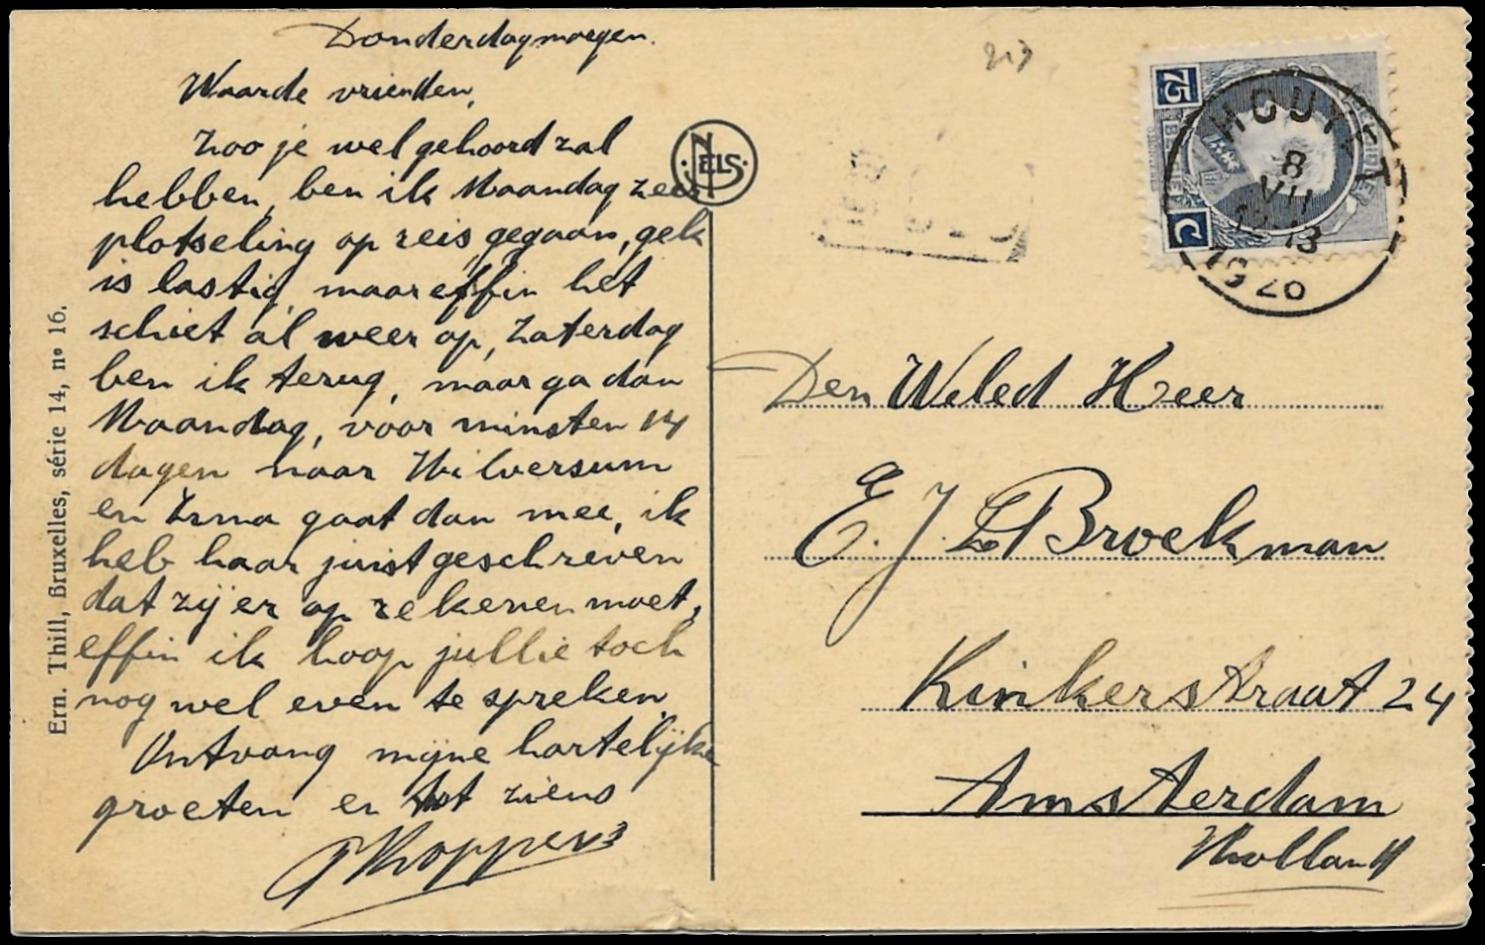 Donderdagmorgen.
Waarde vrienden,
Zoo je wel gehoord zal
hebben, ben ik Maandag zeer
plotseling op reis gegaan, gek
is lastig, maar effin het
schiet al weer op, Zaterdag
ben ik terug, maar ga dan
Maandag, voor minsten 14
dagen naar Hilversum
en Irma gaat dan mee, ik
heb haar juist geschreven
dat zij er op rekenen moet,
effin ik hoop jullie toch
nog wel even te spreken,
Ontvang mijne hartelijke
groeten en tot ziens
Koppens
Ern. Thill, Bruxelles, série 14, nº 16.
NELS
75
C
HOUYET
8
VII
13
1926
Den Weled Heer
E. J. Broekman
Kinkerstraat 24
Amsterdam
Holland